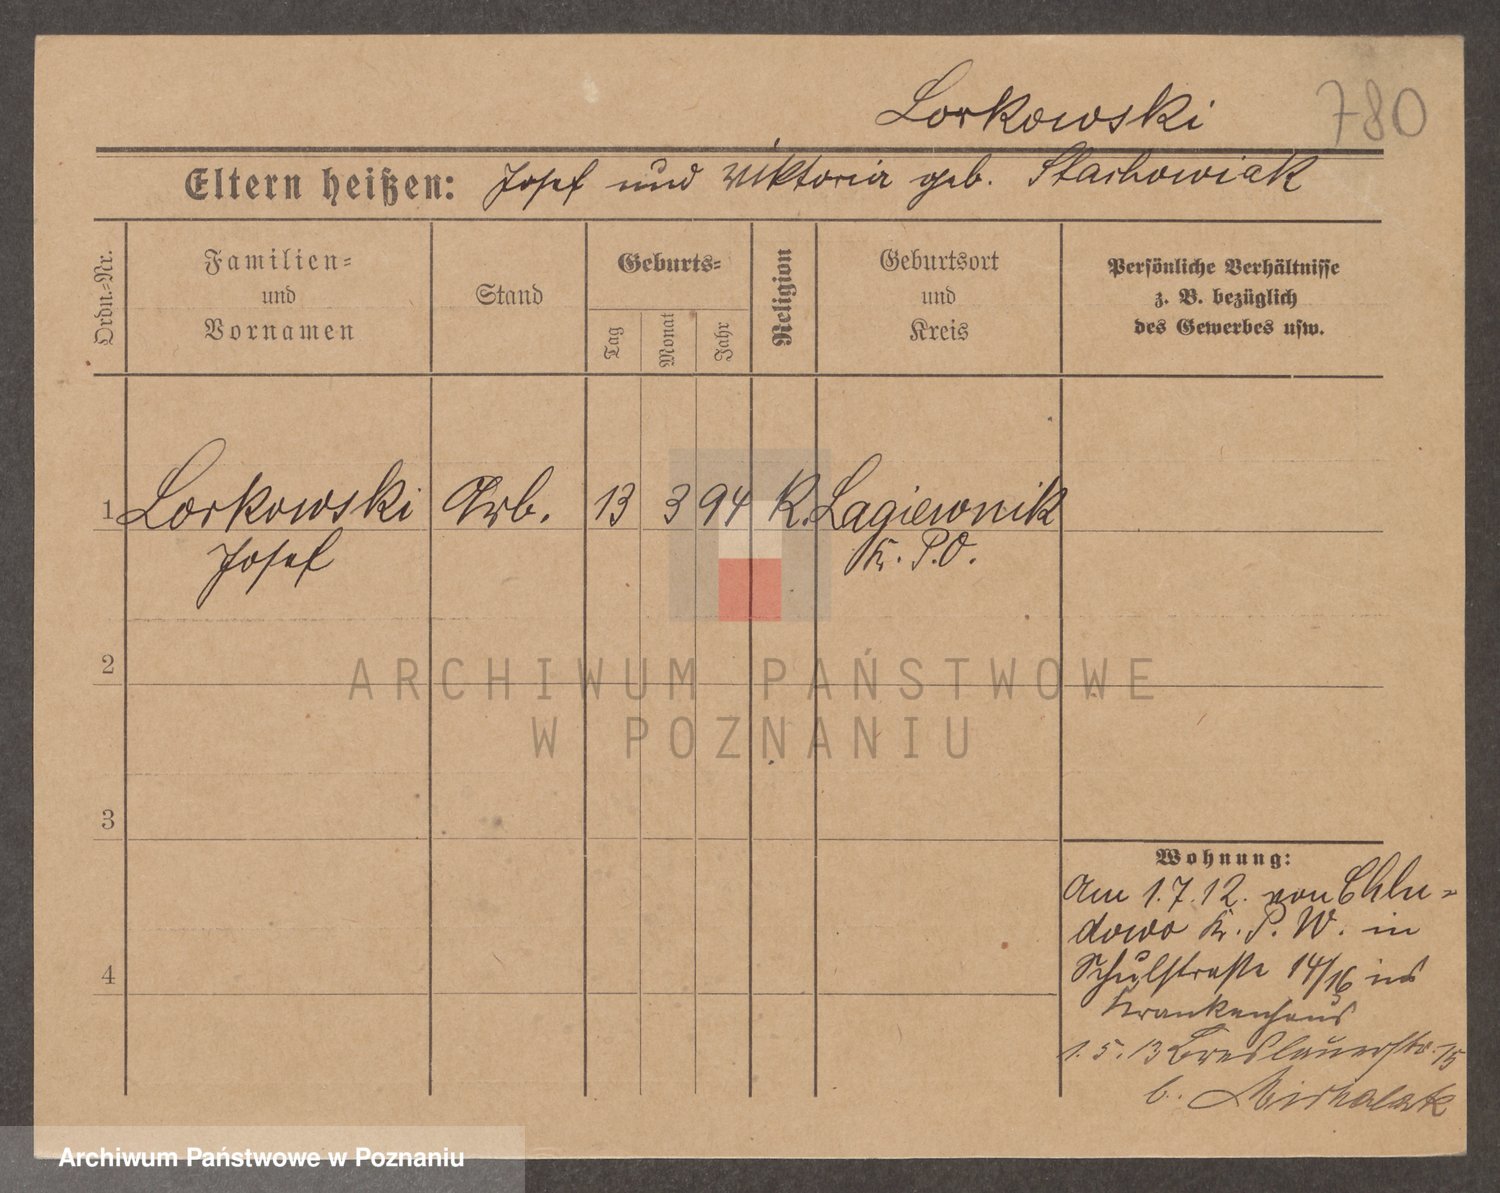 Lorkowski
780
Eltern heißen: Josef und Viktoria geb. Stachowiak
Ordn.-Nr.
Familien-
und
Vornamen
Stand
Geburts-
Tag
Monat
Jahr
Religion
Geburtsort
und
Kreis
Persönliche Verhältnisse
z. B. bezüglich
des Gewerbes usw.
1 Lorkowski Arb. 13 3 94 K. Lagiewnik
Josef Kr. P.O.
2
3
4
Wohnung:
Am 1.7.12. von Chlu-
dowo Kr. P. W. in
Schulstraße 14/16 ins
Krankenhaus
1.5.13 Breslauerstr. 15
b. Michalak
ARCHIWUM PAŃSTWOWE
W POZNANIU
Archiwum Państwowe w Poznaniu